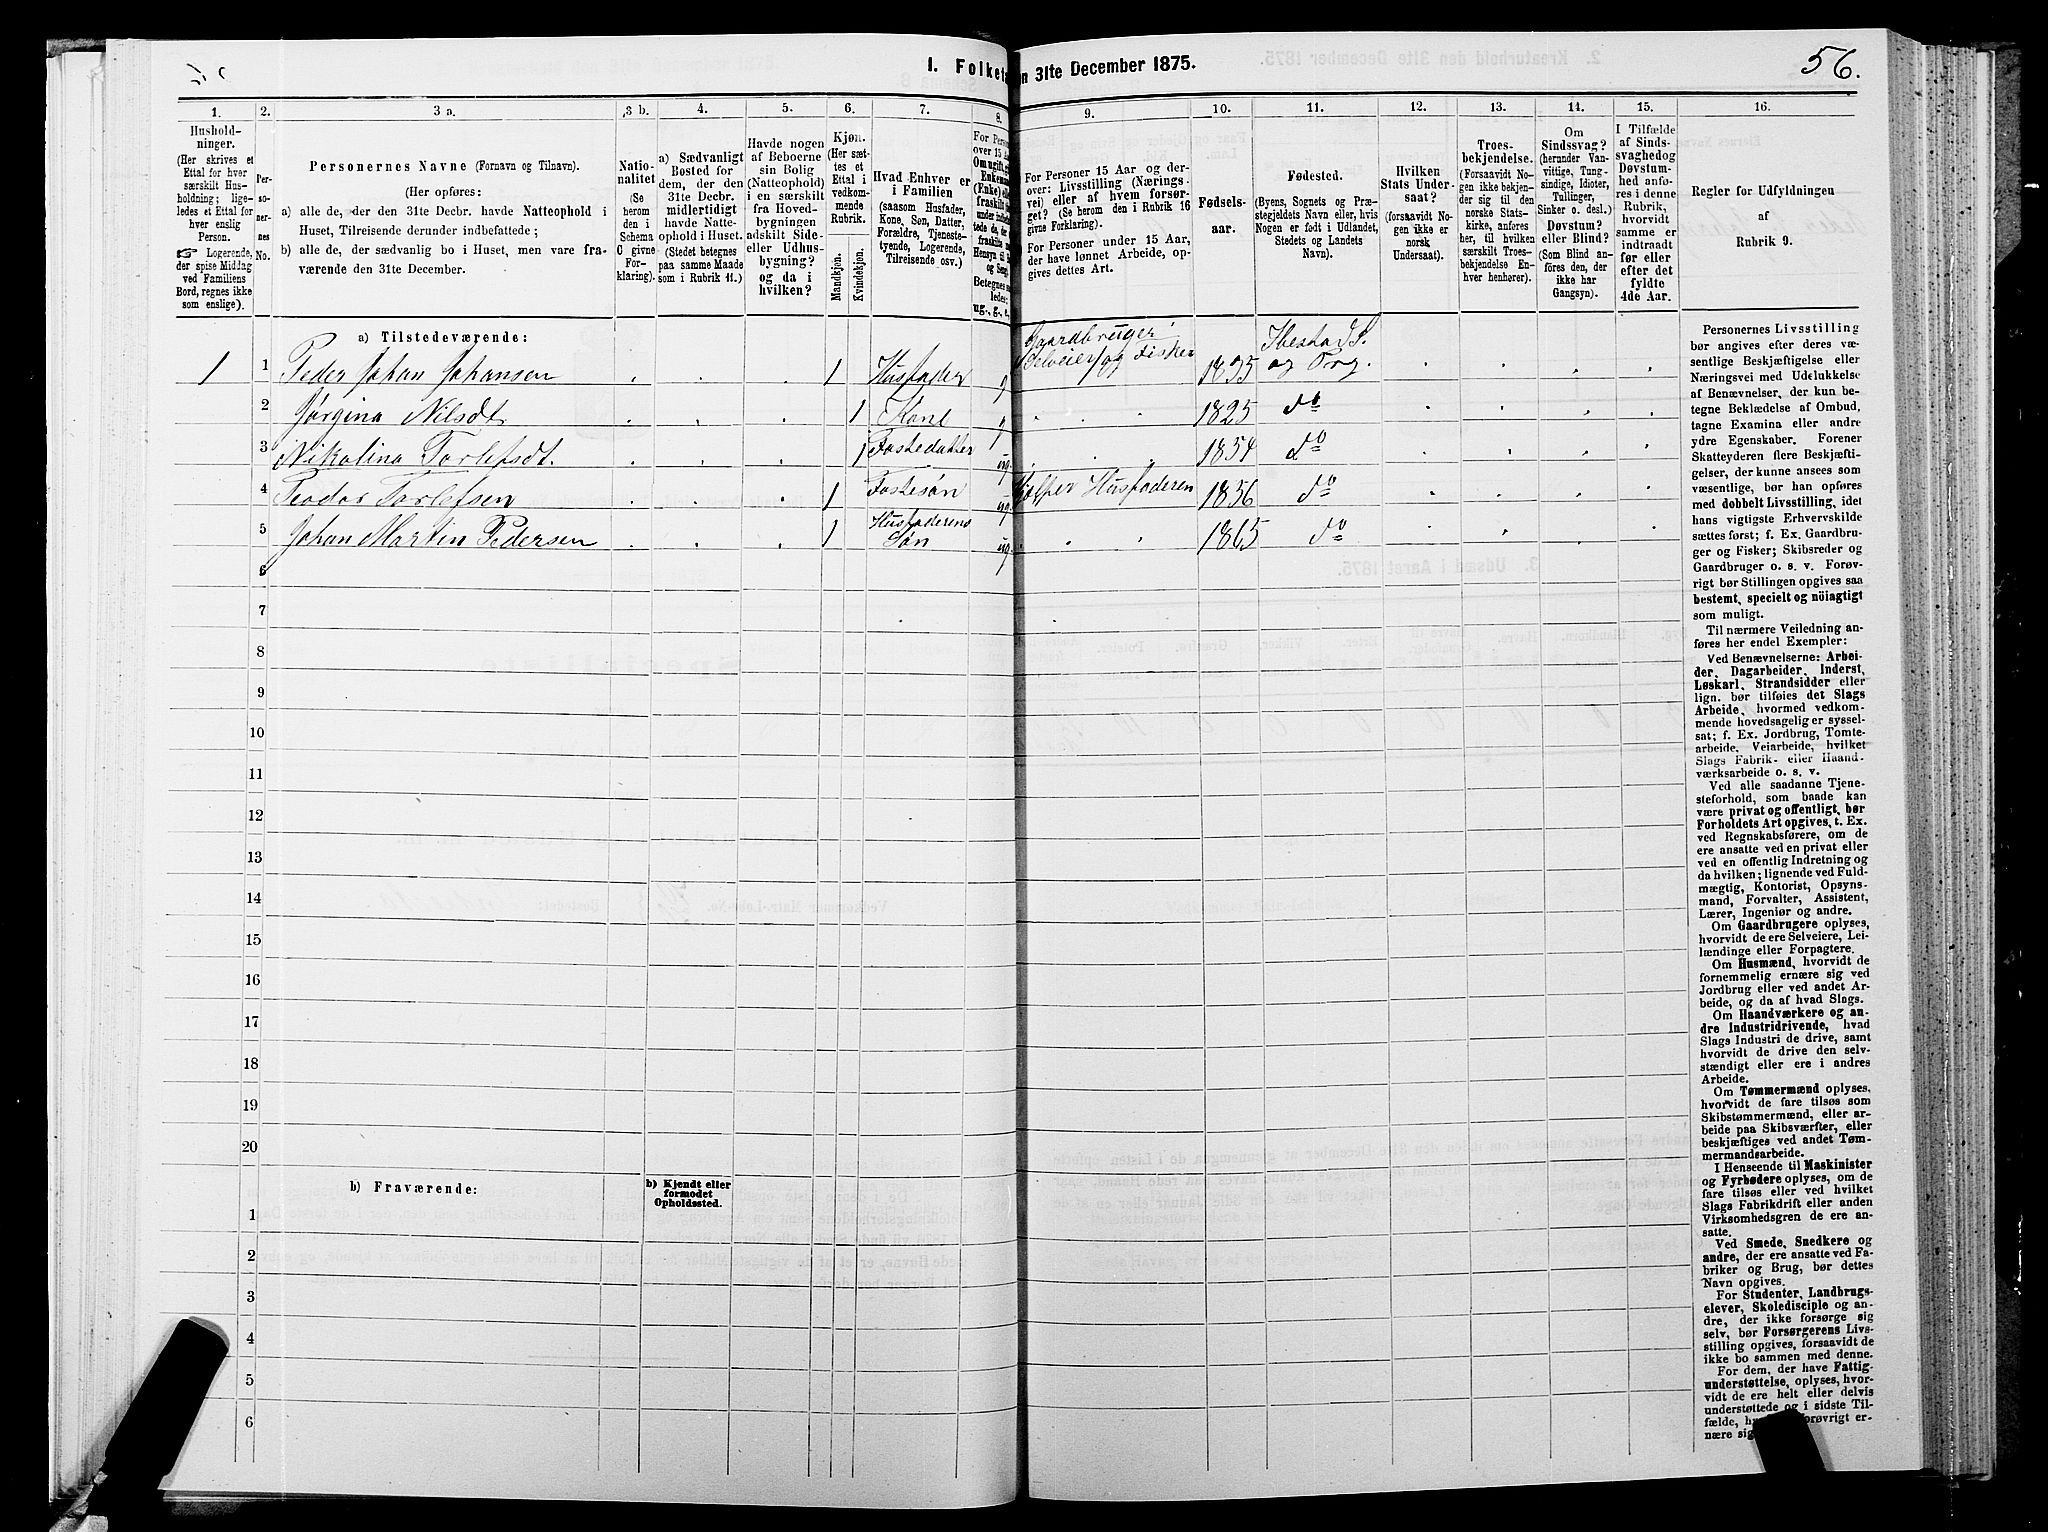 56.
I. Folketa
n 31te December 1875.
1.
2.
3 a.
3 b.
4.
5.
6.
7.
8.
9.
10.
11.
12.
13.
14.
15.
16.
Hushold-
ninger.
(Her skrives et
Ettal for hver
særskilt Hus-
holdning; lige-
ledes et Ettal for
hver enslig
Person.
☞ Logerende,
der spise Middag
ved Familiens
Bord, regnes ikke
som enslige).
Per-
so-
ner-
nes
No.
Personernes Navne (Fornavn og Tilnavn).
(Her opføres:
a) alle de, der den 31te Decbr. havde Natteophold i
Huset, Tilreisende derunder indbefattede;
b) alle de, der sædvanlig bo i Huset, men vare fra-
værende den 31te December.
Natio-
nalitet
(Se
herom
den i
Schema
C givne
For-
klaring).
a) Sædvanligt
Bosted for
dem, der den
31te Decbr.
midlertidigt
havde Natte-
ophold i Huset.
(Stedet betegnes
paa samme Maade
som i Rubrik 11.)
Havde nogen
af Beboerne
sin Bolig
(Natteophold)
i en særskilt
fra Hoved-
bygningen
adskilt Side-
eller Udhus-
bygning?
og da i
hvilken?
Kjøn.
(Her sæt-
tes et
Ettal i
vedkom-
mende
Rubrik.
Mandkjøn.
Kvindekjøn.
Hvad Enhver er
i Familien
(saasom Husfader,
Kone, Søn, Datter,
Forældre, Tjeneste-
tyende, Logerende,
Tilreisende osv.)
For Personer 15 Aar og der-
over: Livsstilling (Nærings-
vei) eller af hvem forsør-
get? (Se herom den i Rubrik 16
givne Forklaring).
For Personer under 15 Aar,
der have lønnet Arbeide, op-
gives dettes Art.
Fødsels-
aar.
Fødested.
(Byens, Sognets og Præ-
stegjeldets Navn eller, hvis
Nogen er født i Udlandet,
Stedets og Landets
Navn).
Hvilken
Stats Under-
saat?
(forsaavidt No-
gen ikke er
norsk
Undersaat).
Troes-
bekjendelse.
(Forsaavidt No-
gen ikke bekjen-
der sig til den
norske Stats-
kirke, anføres
her, til hvilken
særskilt Troes-
bekjendelse En-
hver henhører).
Om
Sindssvag?
(herunder Van-
vittige, Tung-
sindige, Idioter,
Tullinger,
Sinker o. desl.)
Døvstum?
eller Blind?
(Som Blind an-
føres den, der
ikke har
Gangsyn).
I Tilfælde
af Sinds-
svaghed og
Døvstum-
hed anfø-
res i denne
Rubrik,
hvorvidt
samme er
indtraadt
før eller
efter det
fyldte
4de Aar.
Regler for Udfyldningen
af
Rubrik 9.
a) Tilstedeværende:
Gaardbruger Ibestad S.
1 1 Peder Johan Johansen 1 Husfader g Selveier og Fisker 1835 og Prg.
2 Jørgina Nilsdt 1 Kone g 1825 do
3 Nikolina Torlefsdt. 1 Fostedatter ug. 1854 do
4 Peodor Torlefsen 1 Fostesøn ug. Hjelper Husfaderen 1856 do
Husfaderens
5 Johan Martin Pedersen 1 Søn ug. 1865 do
6
7
8
9
10
11
12
13
14
15
16
17
18
19
20
b) Fraværende:
b) Kjendt eller
formodet
Opholdssted.
1
2
3
4
5
6
Personernes Livsstilling
bør angives efter deres væ-
sentlige Beskjæftigelse eller
Næringsvei med Udelukkelse
af Benævnelser, der kun be-
tegne Beklædelse af Ombud,
tagne Examina eller andre
ydre Egenskaber. Forener
Skatteyderen flere Beskjæfti-
gelser, der kunne ansees som
væsentlige, bør han opføres
med dobbelt Livsstilling, idet
hans vigtigste Erhvervskilde
sættes først; f. Ex. Gaardbru-
ger og Fisker; Skibsreder og
Gaardbruger o. s. v. Forøv-
rigt bør Stillingen opgives saa
bestemt, specielt og nöiagtigt
som muligt.
Til nærmere Veiledning an-
føres her endel Exempler:
Ved Benævnelserne: Arbei-
der, Dagarbeider, Inderst,
Løskarl, Strandsidder eller
lign. bør tilføies det Slags
Arbeide, hvormed vedkom-
mende hovedsagelig er syssel-
sat; f. Ex. Jordbrug, Tomte-
arbeide, Veiarbeide, hvilket
Slags Fabrik- eller Haand-
værksarbeide o. s. v.
Ved alle saadanne Tjene-
steforhold, som baade kan
være privat og offentligt, bør
Forholdets Art opgives, t. Ex.
ved Regnskabsførere, om de
ere ansatte ved en privat eller
ved en offentlig Indretning og
da hvilken; lignende ved Fuld-
mægtig, Kontorist, Opsyns-
mand, Forvalter, Assistent,
Lærer, Ingeniør og andre.
Om Gaardbrugere oplyses,
hvorvidt de ere Selveiere, Lei-
lændinge eller Forpagtere.
Om Husmænd, hvorvidt de
fornemmelig ernære sig ved
Jordbrug eller ved andet Ar-
beide, og da af hvad Slags.
Om Haandværkere og an-
dre Industridrivende, hvad
Slags Industri de drive, samt
hvorvidt de drive den selv-
stændigt eller ere i andres
Arbeide.
Om Tømmermænd oplyses,
hvorvidt de fare tilsøs som
Skibstømmermænd, eller ar-
beide paa Skibsværfter, eller
beskjæftiges ved andet Tøm-
mermandsarbeide.
I Henseende til Maskinister
og Fyrbødere oplyses, om de
fare tilsøs eller ved hvilket
Slags Fabrikdrift eller anden
Virksomhedsgren de ere an-
satte.
Ved Smede, Snedkere og
andre, der ere ansatte ved Fa-
briker og Brug, bør dettes
Navn opgives.
For Studenter, Landbrugs-
elever, Skoledisciple og an-
dre, der ikke forsørge sig
selv, bør Forsørgerens Livs-
stilling opgives, forsaavidt de
ikke bo sammen med denne.
For dem, der have Fattig-
understøttelse, oplyses, hvor-
vidt de ere helt eller delvis
understøttede og i sidste Til-
fælde, h forøvrigt er-
nære sig